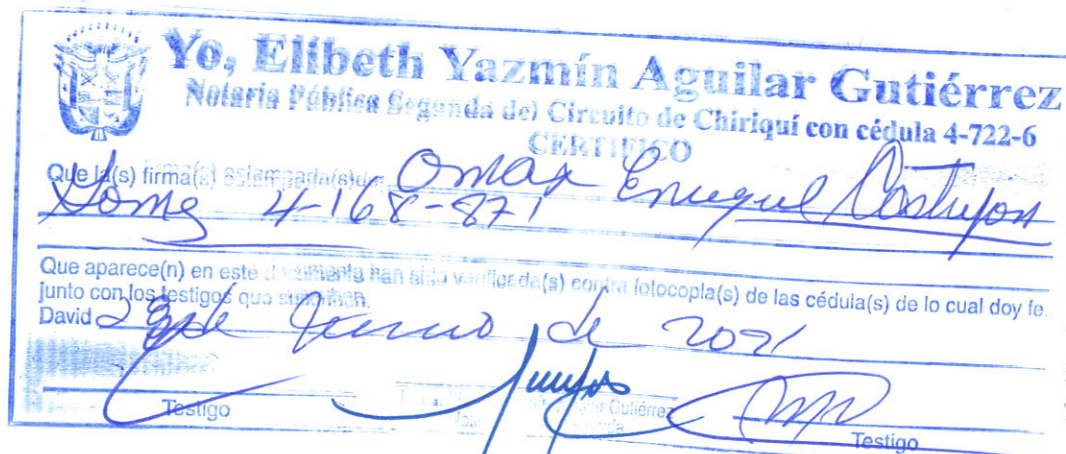 Yo, Elibeth Yazmín Aguilar Gutiérrez
Notaria Pública Segunda del Circuito de Chiriquí con cédula 4-722-6
CERTIFICO
Que la(s) firma(s) estampada(s) de: Omar Enrique Castrejon
4-168-871
Que aparece(n) en este documento han sido verificada(s) contra fotocopia(s) de las cédula(s) de lo cual doy fe.
junto con los testigos que suscriben.
David de de 2021
Gutiérrez
Testigo Testigo